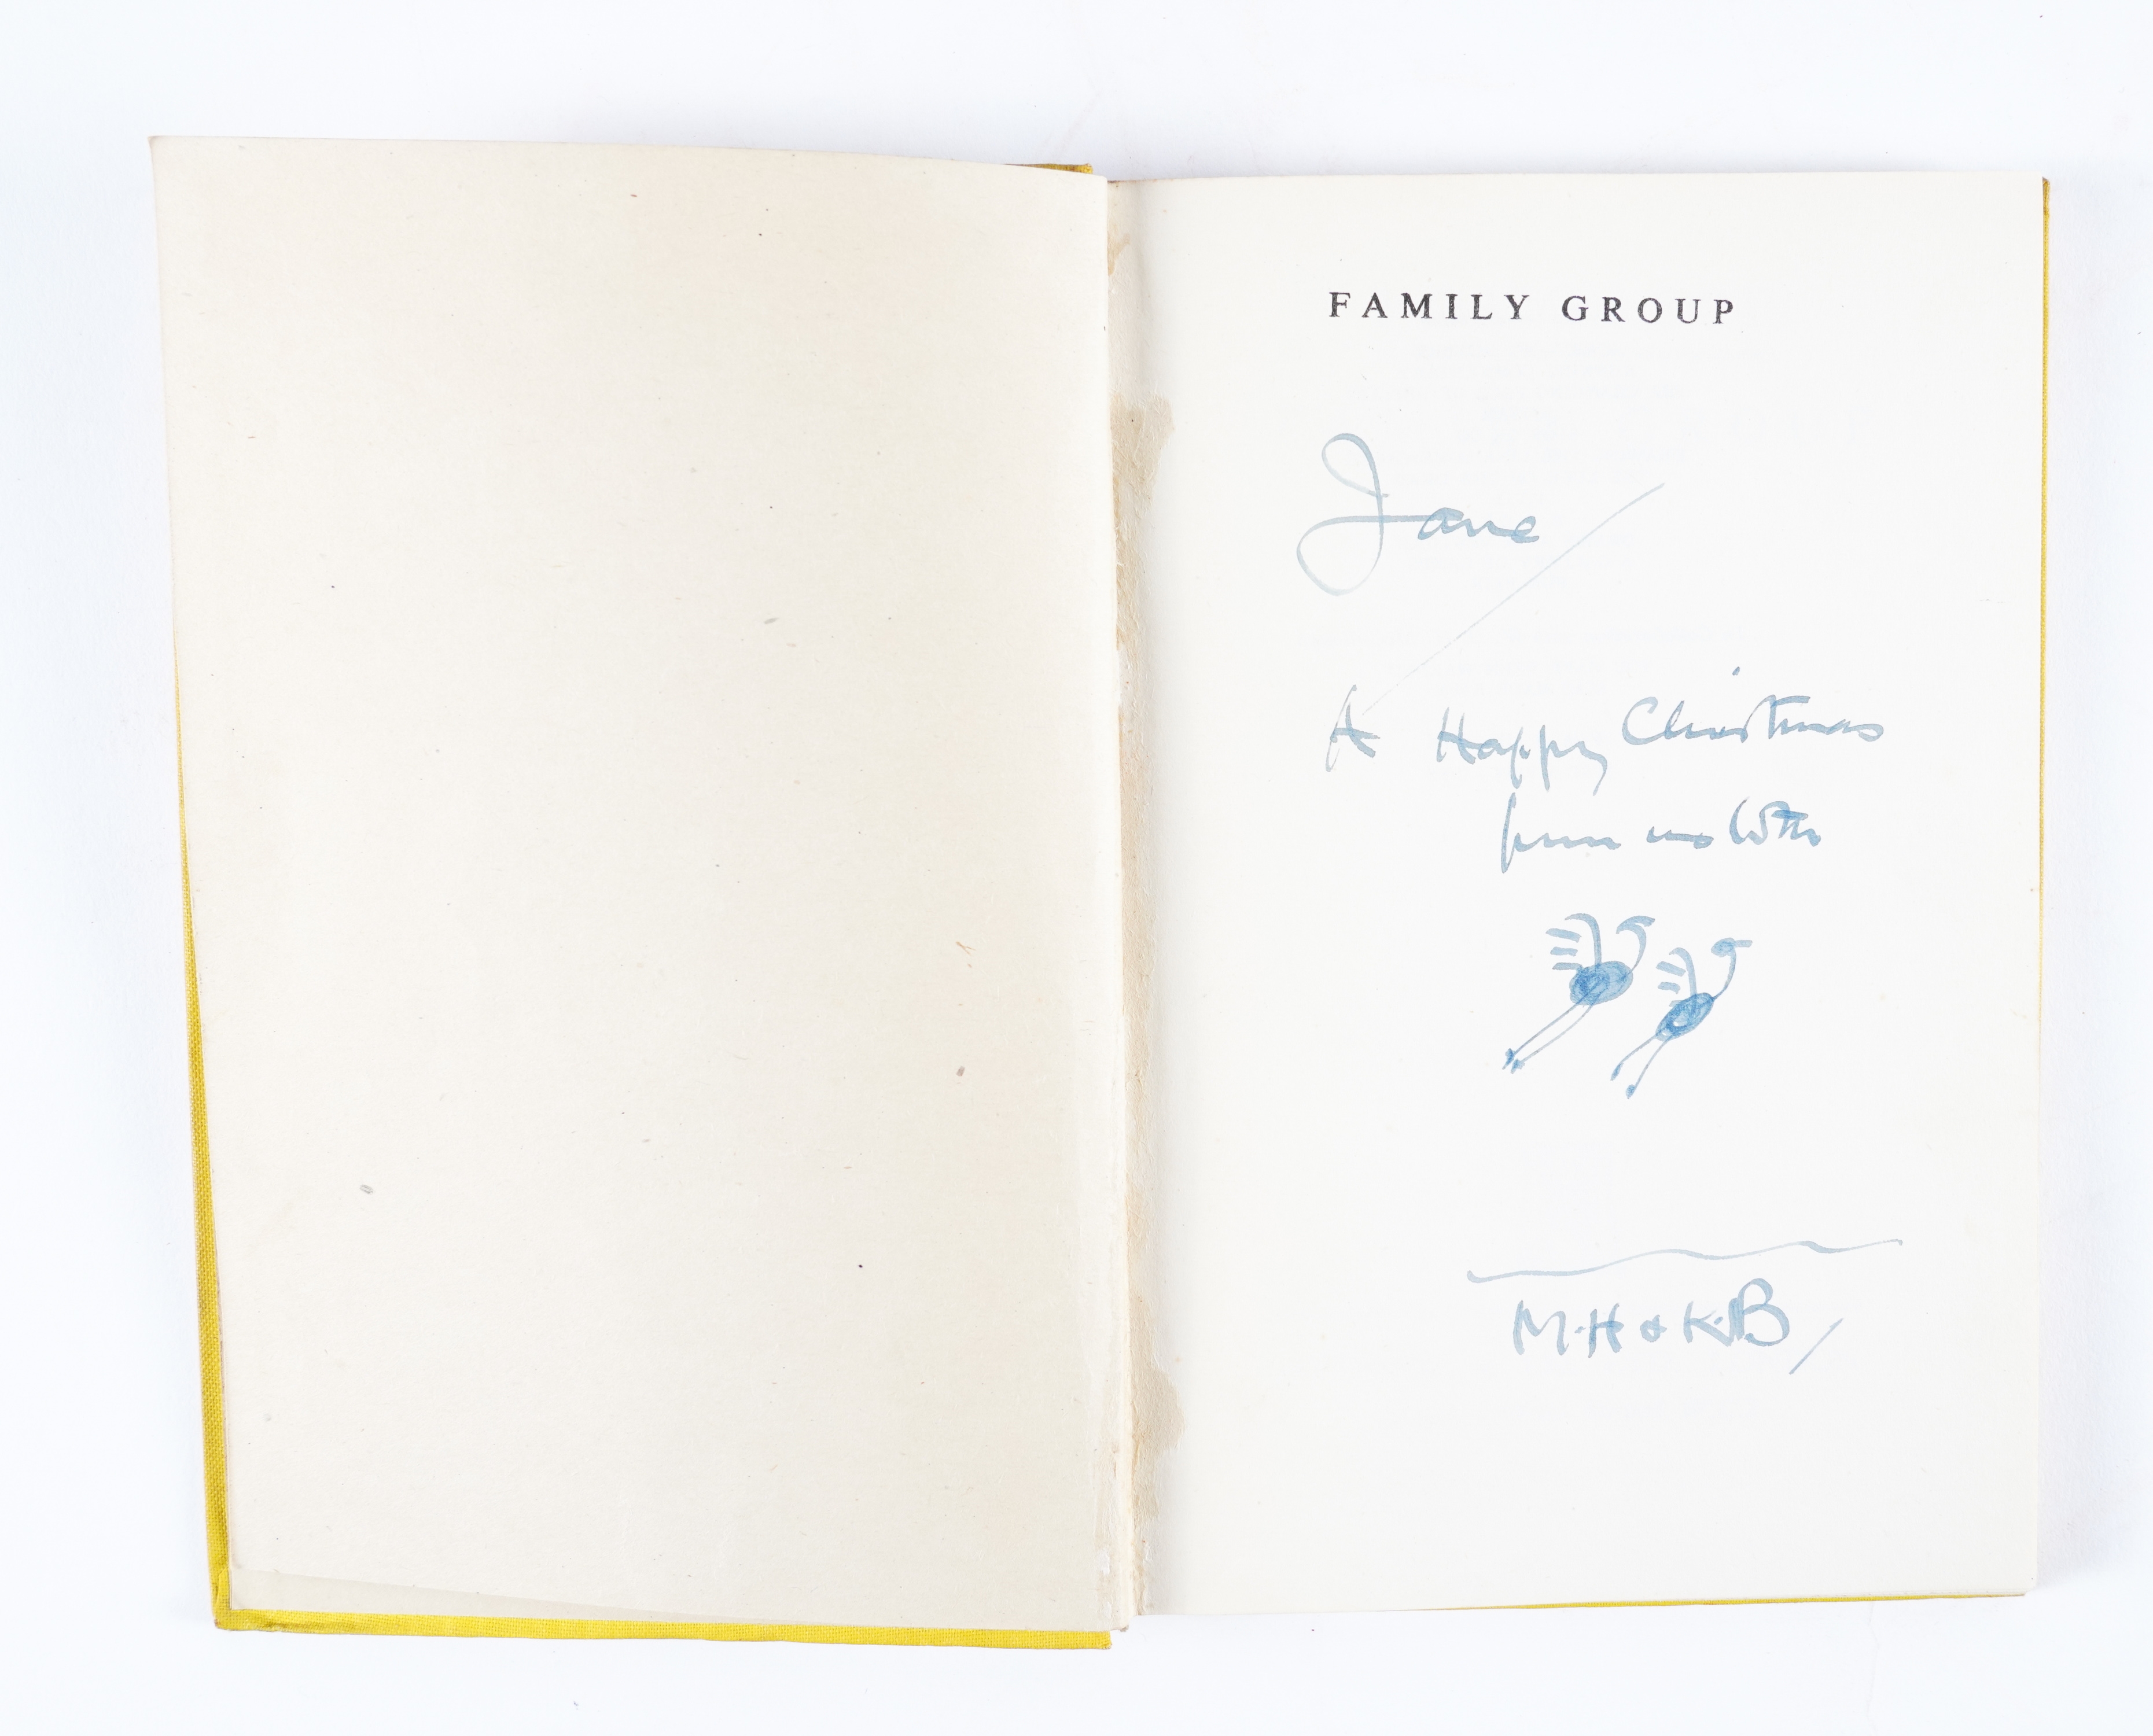 FAMILY GROUP
Jane
A Happy Christmas
from us both
M.H & K.B